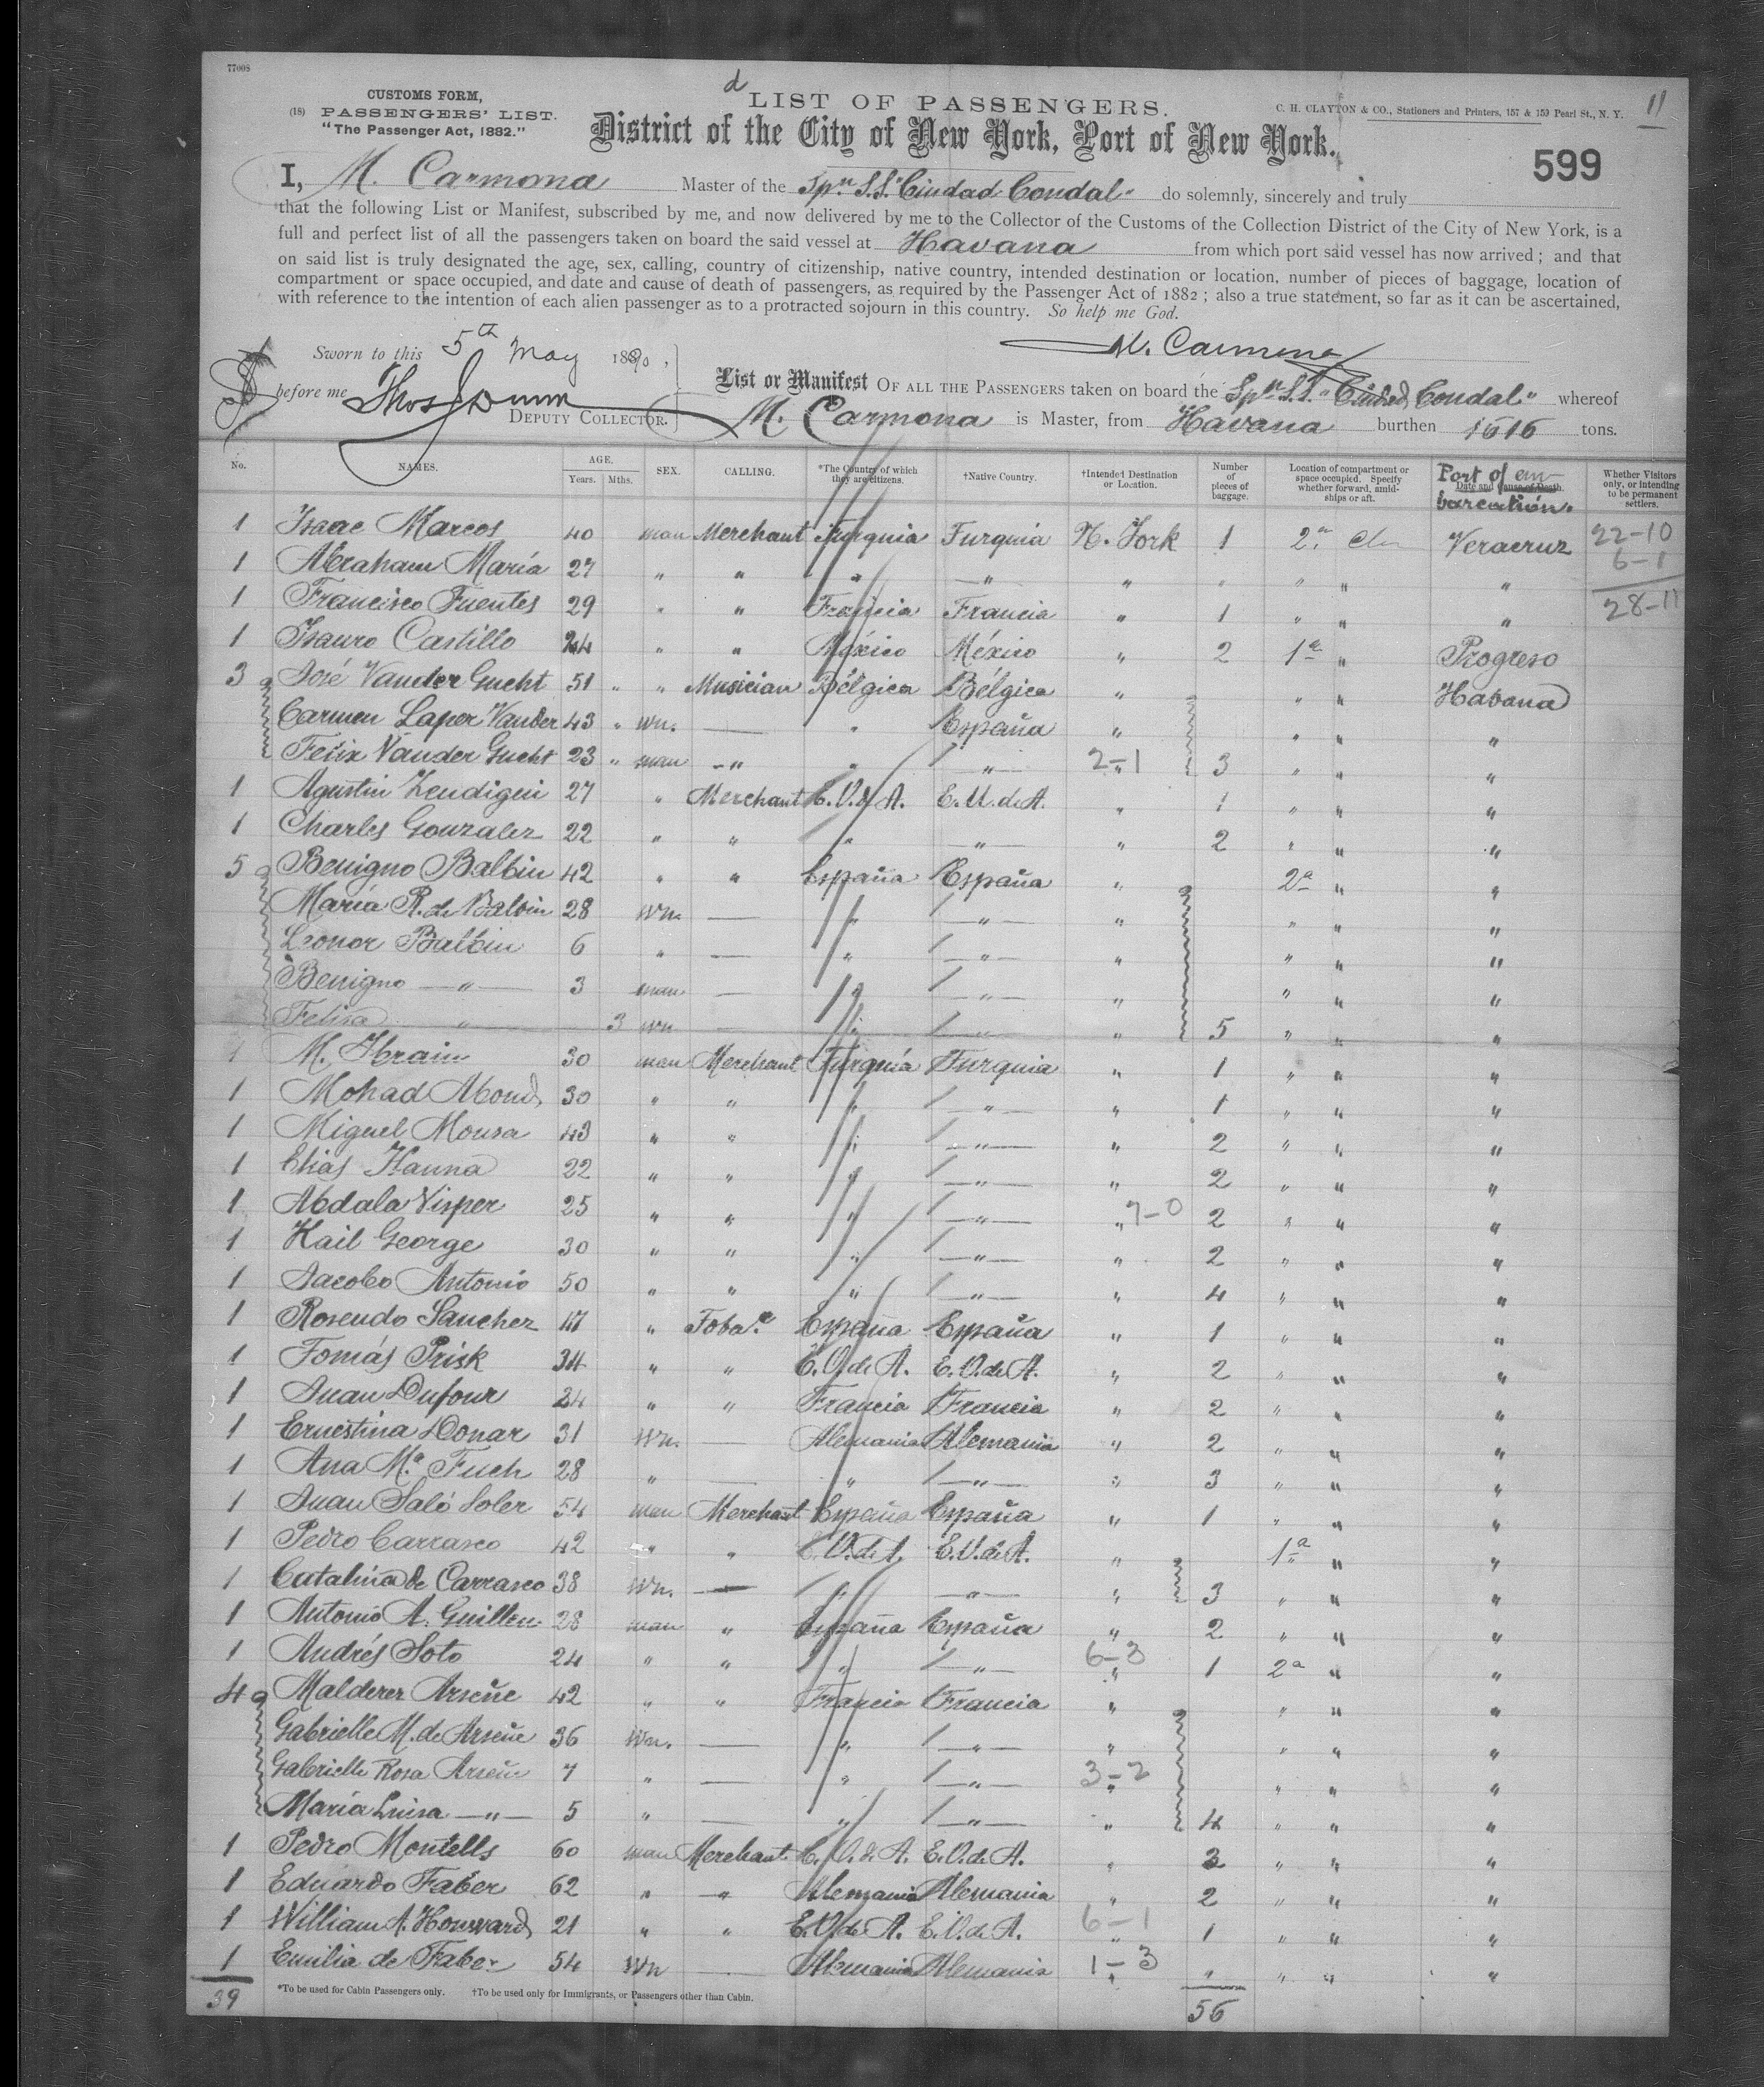 77008
d
11
CUSTOMS FORM,
(18) PASSENGERS' LIST.
"The Passenger Act, 1882."
LIST OF PASSENGERS.
C. H. CLAYTON & CO., Stationers and Printers, 157 & 159 Pearl St., N. Y.
District of the City of New York, Port of New York.
599
I, M. Carmona Master of the Spn. S.S. "Ciudad Condal" do solemnly, sincerely and truly
that the following List or Manifest, subscribed by me, and now delivered by me to the Collector of the Customs of the Collection District of the City of New York, is a
full and perfect list of all the passengers taken on board the said vessel at Havana from which port said vessel has now arrived; and that
on said list is truly designated the age, sex, calling, country of citizenship, native country, intended destination or location, number of pieces of baggage, location of
compartment or space occupied, and date and cause of death of passengers, as required by the Passenger Act of 1882; also a true statement, so far as it can be ascertained,
with reference to the intention of each alien passenger as to a protracted sojourn in this country. So help me God.
Sworn to this 5th May 1890,
M. Carmona
before me Thos Dunn
DEPUTY COLLECTOR.
List or Manifest OF ALL THE PASSENGERS taken on board the Spn. S.S. "Ciudad Condal" whereof
M. Carmona is Master, from Havana burthen 1616 tons.
No. NAMES. AGE. Years. Mths. SEX. CALLING. *The Country of which they are citizens. †Native Country. †Intended Destination or Location. Number of pieces of baggage. Location of compartment or space occupied. Specify whether forward, amidships or aft. Port of embarcation. Date and cause of Death. Whether Visitors only, or intending to be permanent settlers.
1 Isaac Marcos 40 man Merchant Turquia Turquia N. York 1 2a Veracruz 22-10
1 Abraham María 27 " " " " " " " " " 6-1
1 Francisco Fuentes 29 " " Francia Francia " 1 " " " 28-11
1 Isauro Castillo 24 " " México México " 2 1a " Progreso
3 José Vander Gucht 51 " " Musician Bélgica Bélgica " " " Habana
Carmen Laper Vander 43 " wn. — " España " " " "
Felix Vander Gucht 23 " man — " " " 2-1 " 3 " " "
1 Agustin 27 " Merchant E.U.d A. E.U.d A. " 1 " " "
1 Charles Gonzalez 22 " " " " " 2 " " "
5 Benigno Balbin 42 " " España España " 2a " "
María R. de Balbin 28 wn. — " " " " " "
Leonor Balbin 6 " — " " " " " "
Benigno " 3 man — " " " " " "
Felisa " 3 wn — " " " 5 " " "
1 M. Ibraim 30 man Merchant Turquía Turquia " 1 " " "
1 Mohad Aboud 30 " " " " " 1 " " "
1 Miguel Mousa 43 " " " " " 2 " " "
1 Elias Hanna 22 " " " " " 2 " " "
1 Abdala Visper 25 " " " " " 7-0 2 " " "
1 Kail George 30 " " " " " 2 " " "
1 Jacobo Antonio 50 " " " " " 4 " " "
1 Rosendo Sanchez 47 " Toba.o España España " 1 " " "
1 Tomás Prisk 34 " " E.U.de A. E.U.de A. " 2 " " "
1 Juan Dufour 24 " " Francia Francia " 2 " " "
1 Ernestina Donar 31 wn. — Alemania Alemania " 2 " " "
1 Ana Ma. Fuch 28 " — " " " 3 " " "
1 Juan Saló Soler 54 man Merchant España España " 1 " " "
1 Pedro Carrasco 42 " " E.U.de A. E.U.de A. " 1a " "
1 Catalina de Carrasco 38 wn. — " " " 3 " " "
1 Antonio A. Guillen 28 man " España España " 2 " " "
1 Andrés Soto 24 " " " " 6-3 " 1 2a " "
4 Malderer Arseñe 42 " " Francia Francia " " " "
Gabrielle M. de Arseñe 36 wn. — " " " " " "
Gabrielle Rosa Arseñe 7 " — " " 3-2 " " " "
María Luisa " 5 " — " " " 4 " " "
1 Pedro Montells 60 man Merchant E.U.de A. E.U.de A. " 3 " " "
1 Eduardo Faber 62 " " Alemania Alemania " 2 " " "
1 William A. Howward 21 " " E.U.de A. E.U.de A. 6-1 " 1 " " "
1 Emilia de Faber 54 wn — Alemania Alemania 1-3 " " " " "
39 *To be used for Cabin Passengers only. †To be used only for Immigrants, or Passengers other than Cabin. 56